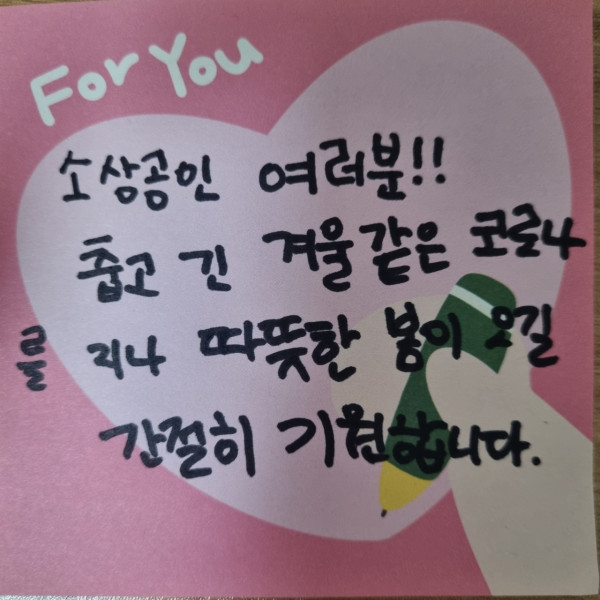 For You
소상공인 여러분!!
춥고 긴 겨울 같은 코로나
를 지나 따뜻한 봄이 오길
간절히 기원합니다.